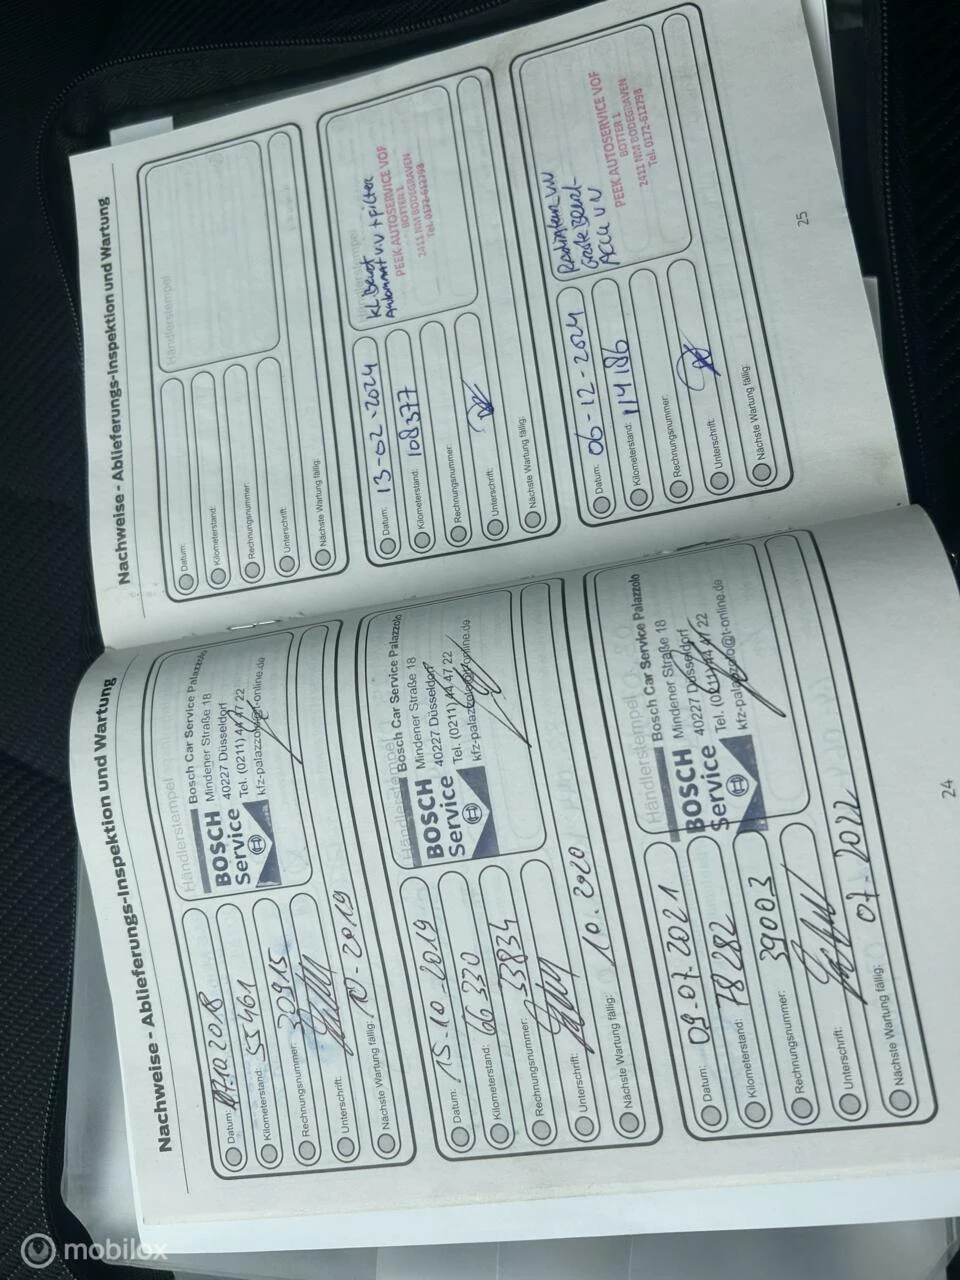 Nachweise - Ablieferungs-Inspektion und Wartung
Datum: 17.10.2018
Kilometerstand: 55461
Rechnungsnummer: 30915
Unterschrift:
Nächste Wartung fällig: 10-2019
Händlerstempel
BOSCH
Service
Bosch Car Service Palazzolo
Mindener Straße 18
40227 Düsseldorf
Tel. (0211) 44 47 22
kfz-palazzolo@t-online.de
Datum: 15-10-2019
Kilometerstand: 66 330
Rechnungsnummer: 33834
Unterschrift:
Nächste Wartung fällig: 10.2020
Händlerstempel
BOSCH
Service
Bosch Car Service Palazzolo
Mindener Straße 18
40227 Düsseldorf
Tel. (0211) 44 47 22
kfz-palazzolo@t-online.de
Datum: 09-07.2021
Kilometerstand: 78282
Rechnungsnummer: 39003
Unterschrift:
Nächste Wartung fällig: 07-2022
Händlerstempel
BOSCH
Service
Bosch Car Service Palazzolo
Mindener Straße 18
40227 Düsseldorf
Tel. (0211) 44 47 22
kfz-palazzolo@t-online.de
24
Nachweise - Ablieferungs-Inspektion und Wartung
Datum:
Kilometerstand:
Rechnungsnummer:
Unterschrift:
Nächste Wartung fällig:
Händlerstempel
Datum: 13-02-2024
Kilometerstand: 108377
Rechnungsnummer:
Unterschrift:
Nächste Wartung fällig:
Händlerstempel
kl. Beurt
Automaat v.v + filter
PEEK AUTOSERVICE VOF
BOTTER 1
2411 NM BODEGRAVEN
Tel. 0172-612798
Datum: 06-12-2024
Kilometerstand: 114186
Rechnungsnummer:
Unterschrift:
Nächste Wartung fällig:
Grote Beurt
Accu v.v
PEEK AUTOSERVICE VOF
BOTTER 1
2411 NM BODEGRAVEN
Tel. 0172-612798
25
mobilox